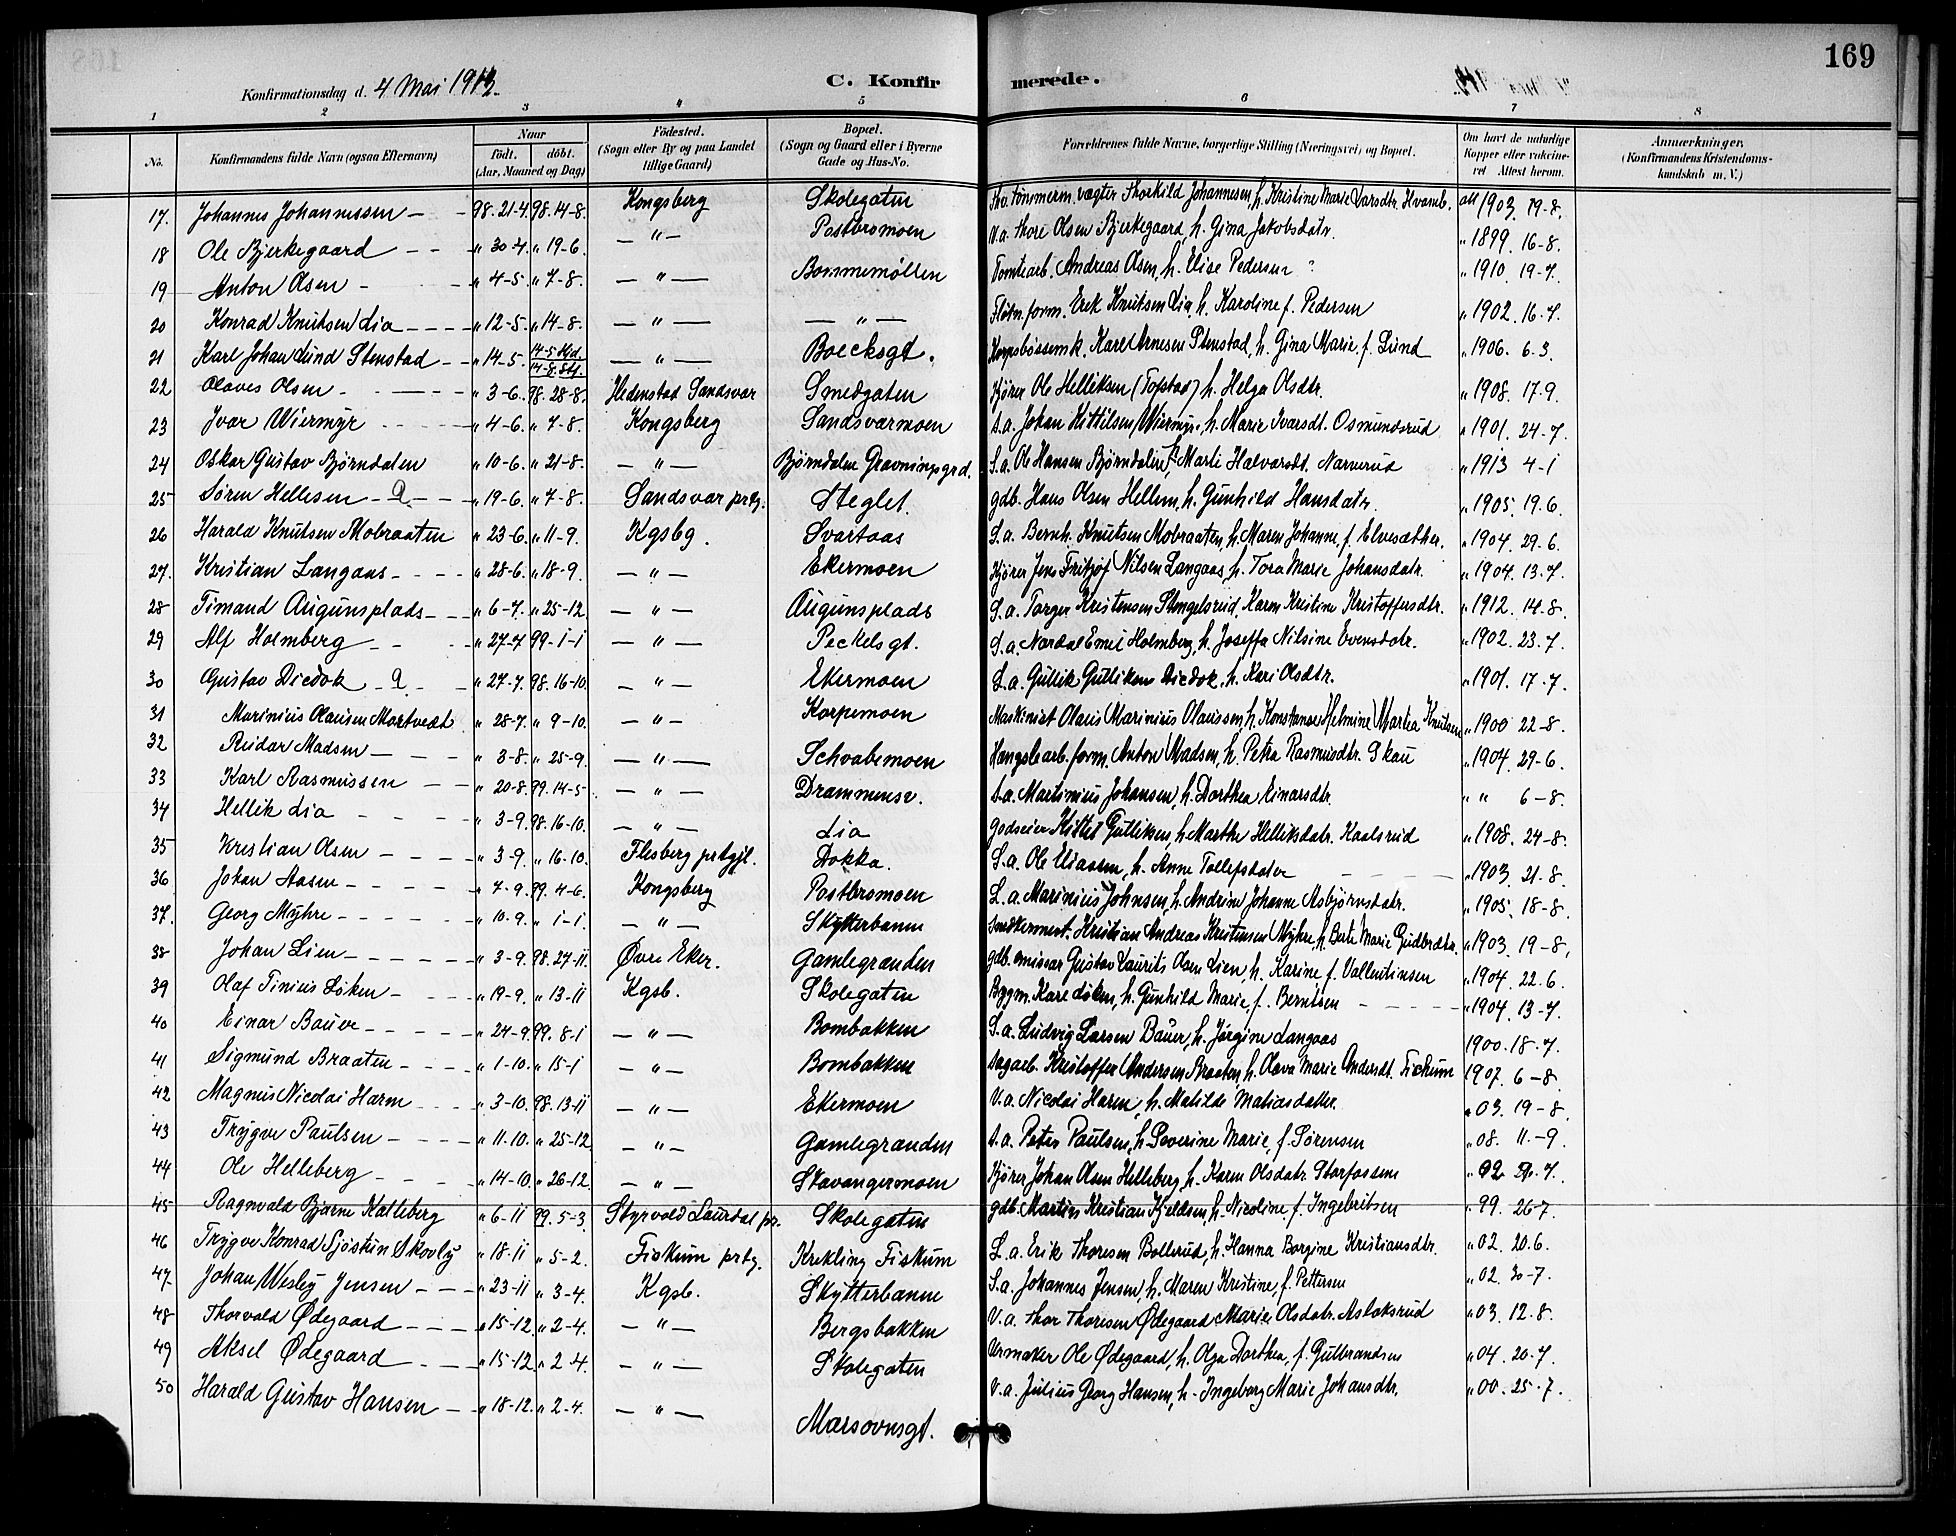 169
Konfirmationsdag d. 4 Mai 1913.
C. Konfirmerede.
1 2 3 4 5 6 7 8
No. Konfirmandens fulde Navn (ogsaa Efternavn) Naar født. døbt. (Aar, Maaned og Dag) Fødested. (Sogn eller By og paa Landet tillige Gaard) Bopæl. (Sogn og Gaard eller i Byerne Gade og Hus-No. Forældrenes fulde Navne, borgerlige Stilling (Næringsvei) og Bopæl. Om havt de naturlige Kopper eller vakcineret Attest herom. Anmærkninger, (Konfirmandens Kristendomskundskab m. V.)
17. Johannes Johannessen 98. 21-4. 98. 14-8. Kongsberg Skolegaten vægter Thorkild Johannesen, h. Kristine Marie Larsdtr. Hvamb. att 1903. 19-8.
18 Ole Bjerkegaard " 30-4. " 19-6. — " — Postbromoen V.a. Thore Olsen Bjerkegaard, h. Gina Jakobsdatr. " 1899. 16-8.
19 Anton Olsen " 4-5 " 7-8. — " — Bommemøllen Tomtearb. Andreas Olsen, h. Elise Pedersen " 1910. 19-7.
20 Konrad Knutsen Lia " 12-5. " 14-8. — " — — " — Fløtn.form. Erik Knutsen Lia, h. Karoline f. Pedersen " 1902. 16-7.
21 Karl Johan Lund Stenstad " 14-5. 14-5 Hjd. 14-8. Stf. — " — Boecksgt. Karl Arnesen Stenstad, h. Gina Marie, f. Lund " 1906. 6-3.
22 Olaves Olsen " 3-6. 98. 28-8. Hedenstad Sandsvær Smedgaten Kjører Ole Helliksen (Topstad) h. Helga Olsdtr. " 1908. 17-9.
23 Ivar Wiermyr " 4-6. " 7-8. Kongsberg Sandsværmoen S.a. Johan Kittilsen Wiermyr, h. Marie Ivarsdt. Osmundsrud " 1901. 24-7.
24 Oskar Gustav Bjørndalen " 10-6. " 21-8. — " — Bjørndalen Gravningsgrd. S.a. Ole Hansen Bjørndalen, h. Marli Halvorsdt. Narverud " 1913 4-1
25 Søren Hellesen " 19-6. " 7-8. Sandsvær prtg. Steglet. gdb. Hans Olsen Hellem, h. Gunhild Hansdatr. " 1905. 19.6.
26 Harald Knutsen Mobraaten " 23-6. " 11-9. Kgsbg. Svartaas S.a. Bernh. Knutsen Mobraaten, h. Maren Johanne, f. Elvesæther. " 1904. 29-6.
27. Kristian Langaas " 28-6. " 18-9. — " — Ekermoen Kjører Jens Fritjof Nilsen Langaas, h. Tora Marie Johansdatr. " 1904. 13-7.
28 Timand Augunsplads " 6-7. " 25-12. — " — Augunsplads S.a. Torger Kristensen Stengelsrud, Karen Kristine Kristoffersdtr. " 1912. 14-8.
29 Alf Holmberg " 27-7 99. 1-1 — " — Peckelsgt. S.a. Nordal Emil Holmberg, h. Joseffa Nilsine Evensdatr. " 1902. 23.7.
30 Gustav Diedok " 27-7. 98. 16-10. — " — Ekermoen S.a. Gullik Gulliksen Diedok, h. Kari Olsdtr. " 1901. 17-7.
31 Marinius Olausen Mortvedt " 28-7. " 9-10. — " — Korpemoen Maskinist Olaus Marinius Olaussen, h. Konstanse Helmine Martea Knutsen " 1900 22-8.
32 Reidar Madsen " 3-8. " 25-9. — " — Schvabemoen form. Anton Madsen, h. Petra Rasmusdtr. Skau " 1904. 29-6.
33 Karl Rasmussen " 20-8. 99. 14-5 — " — Drammensv. S.a. Martinius Johansen, h. Dorthea Einarsdtr. " " 6-8.
34 Hellik Lia " 3-9. 98. 16-10. — " — Lia Godseier Kittil Gulliksen, h. Marthe Helliksdatr. Kaalsrud " 1908. 24-8.
35 Kristian Olsen " 3-9. " 16-10. Flesberg prstgjl. Dokka. S.a. Ole Eliassen, h. Anne Tollefsdater " 1903. 21-8.
36 Johan Aasen " 7-9. 99. 4-6. Kongsberg Postbromoen L.a. Marinius Johnsen, h. Andrine Johanne Asbjørnsdatr. " 1905. 18-8.
37. Georg Myhre " 10-9. " 1-1. — " — Skytterbanen Snedkermest. Kristian Andreas Kristensen Myhre, h. Berte Marie Gudbrdtr. " 1903. 19-8.
38 Johan Lien " 3-9. 98. 27-11. Øvre Eker. Gamlegranden gdb. emissær Gustav Laurits Olsen Lien, h. Karine, f. Vallentinsen " 1904. 22.6.
39 Olaf Tinius Løken " 19-9. " 13-11 Kgsb. Skolegaten Bygm. Karl Løken, h. Gunhild Marie, f. Berntsen " 1904. 13-7.
40 Einar Bauer " 24-9. 99. 8-1 — " — Bombakken S.a. Ludvig Larsen Bauer, h. Jørgine Langaas 1900. 18-7.
41 Sigmund Braaten " 1-10. " 15-1 — " — Bombakken Sagarb. Kristoffer Andersen Braaten, h. Olava Marie Andersdt. Fiskum 1907. 6-8.
42 Magnus Nicolai Harm " 3-10. 98. 13-11 — " — Ekermoen V.a. Nicolai Harm, h. Matilde Matiasdatter. " 03. 19-8.
43 Trygve Paulsen " 11-10. " 25-12 — " — Gamlegranden S.a. Peter Paulsen, h. Severine Marie, f. Sørensen " 08. 11.-9.
44 Ole Helleberg " 14-10. " 26-12. — " — Stavangermoen Kjører Johan Olsen Helleberg, h. Karen Olsdatr. Storfossen " 02
45 Ragnvald Bjarne Kalleberg " 6-11 99. 5-3. Styrvold Laurdal pr. Skolegaten gdb. Martin Kristian Kjeldsen, h. Nicoline, f. Ingebritsen " 99. 26-7.
46 Trygve Konrad Sjøstun Skovly " 18-11 " 5-2. Fiskum prtg. Krekling Fiskum S.a. Erik Thoresen Bollerud, h. Hanna Borgine Kristiansdtr. " 02. 20.6.
47 Johan Wesley Jensen " 23-11 " 3-4. Kgsb. Skytterbanne S.a. Johannes Jensen, h. Maren Kristine, f. Pettersen " 02. 30-7.
48 Thorvald Ødegaard " 15-12. " 2-4. — " — Bergsbakken V.a. Thor Thoresen Ødegaard Marie Olsdatr. Aslaksrud " 03. 12.8.
49 Aksel Ødegaard " 15-12. " 2-4. — " — Skolegaten Urmaker Ole Ødegaard, h. Olga Dorthea, f. Gulbrandsen " 04. 20-7.
50 Harald Gustav Hansen " 18-12. " 2-4. — " — Marsovnsgt. V.a. Julius Georg Hansen, h. Ingeborg Marie Johansdtr. " 00. 25-7.